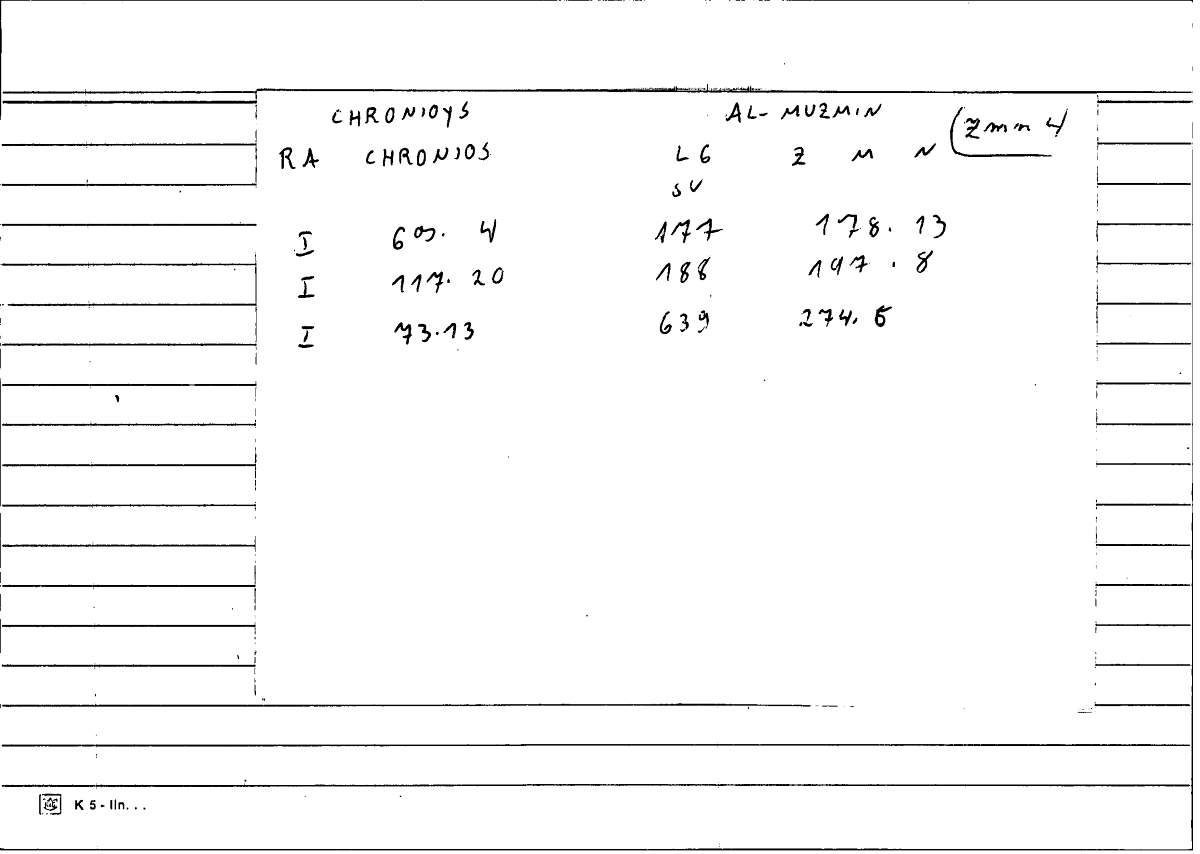 CHRONIOYS AL-MUZMIN (Zmn 4
RA CHRONIOS LG Z M N
SV
I 609. 4 177 178. 13
I 117. 20 188 197. 8
I 73.13 639 274. 6
K 5 - lln. . .